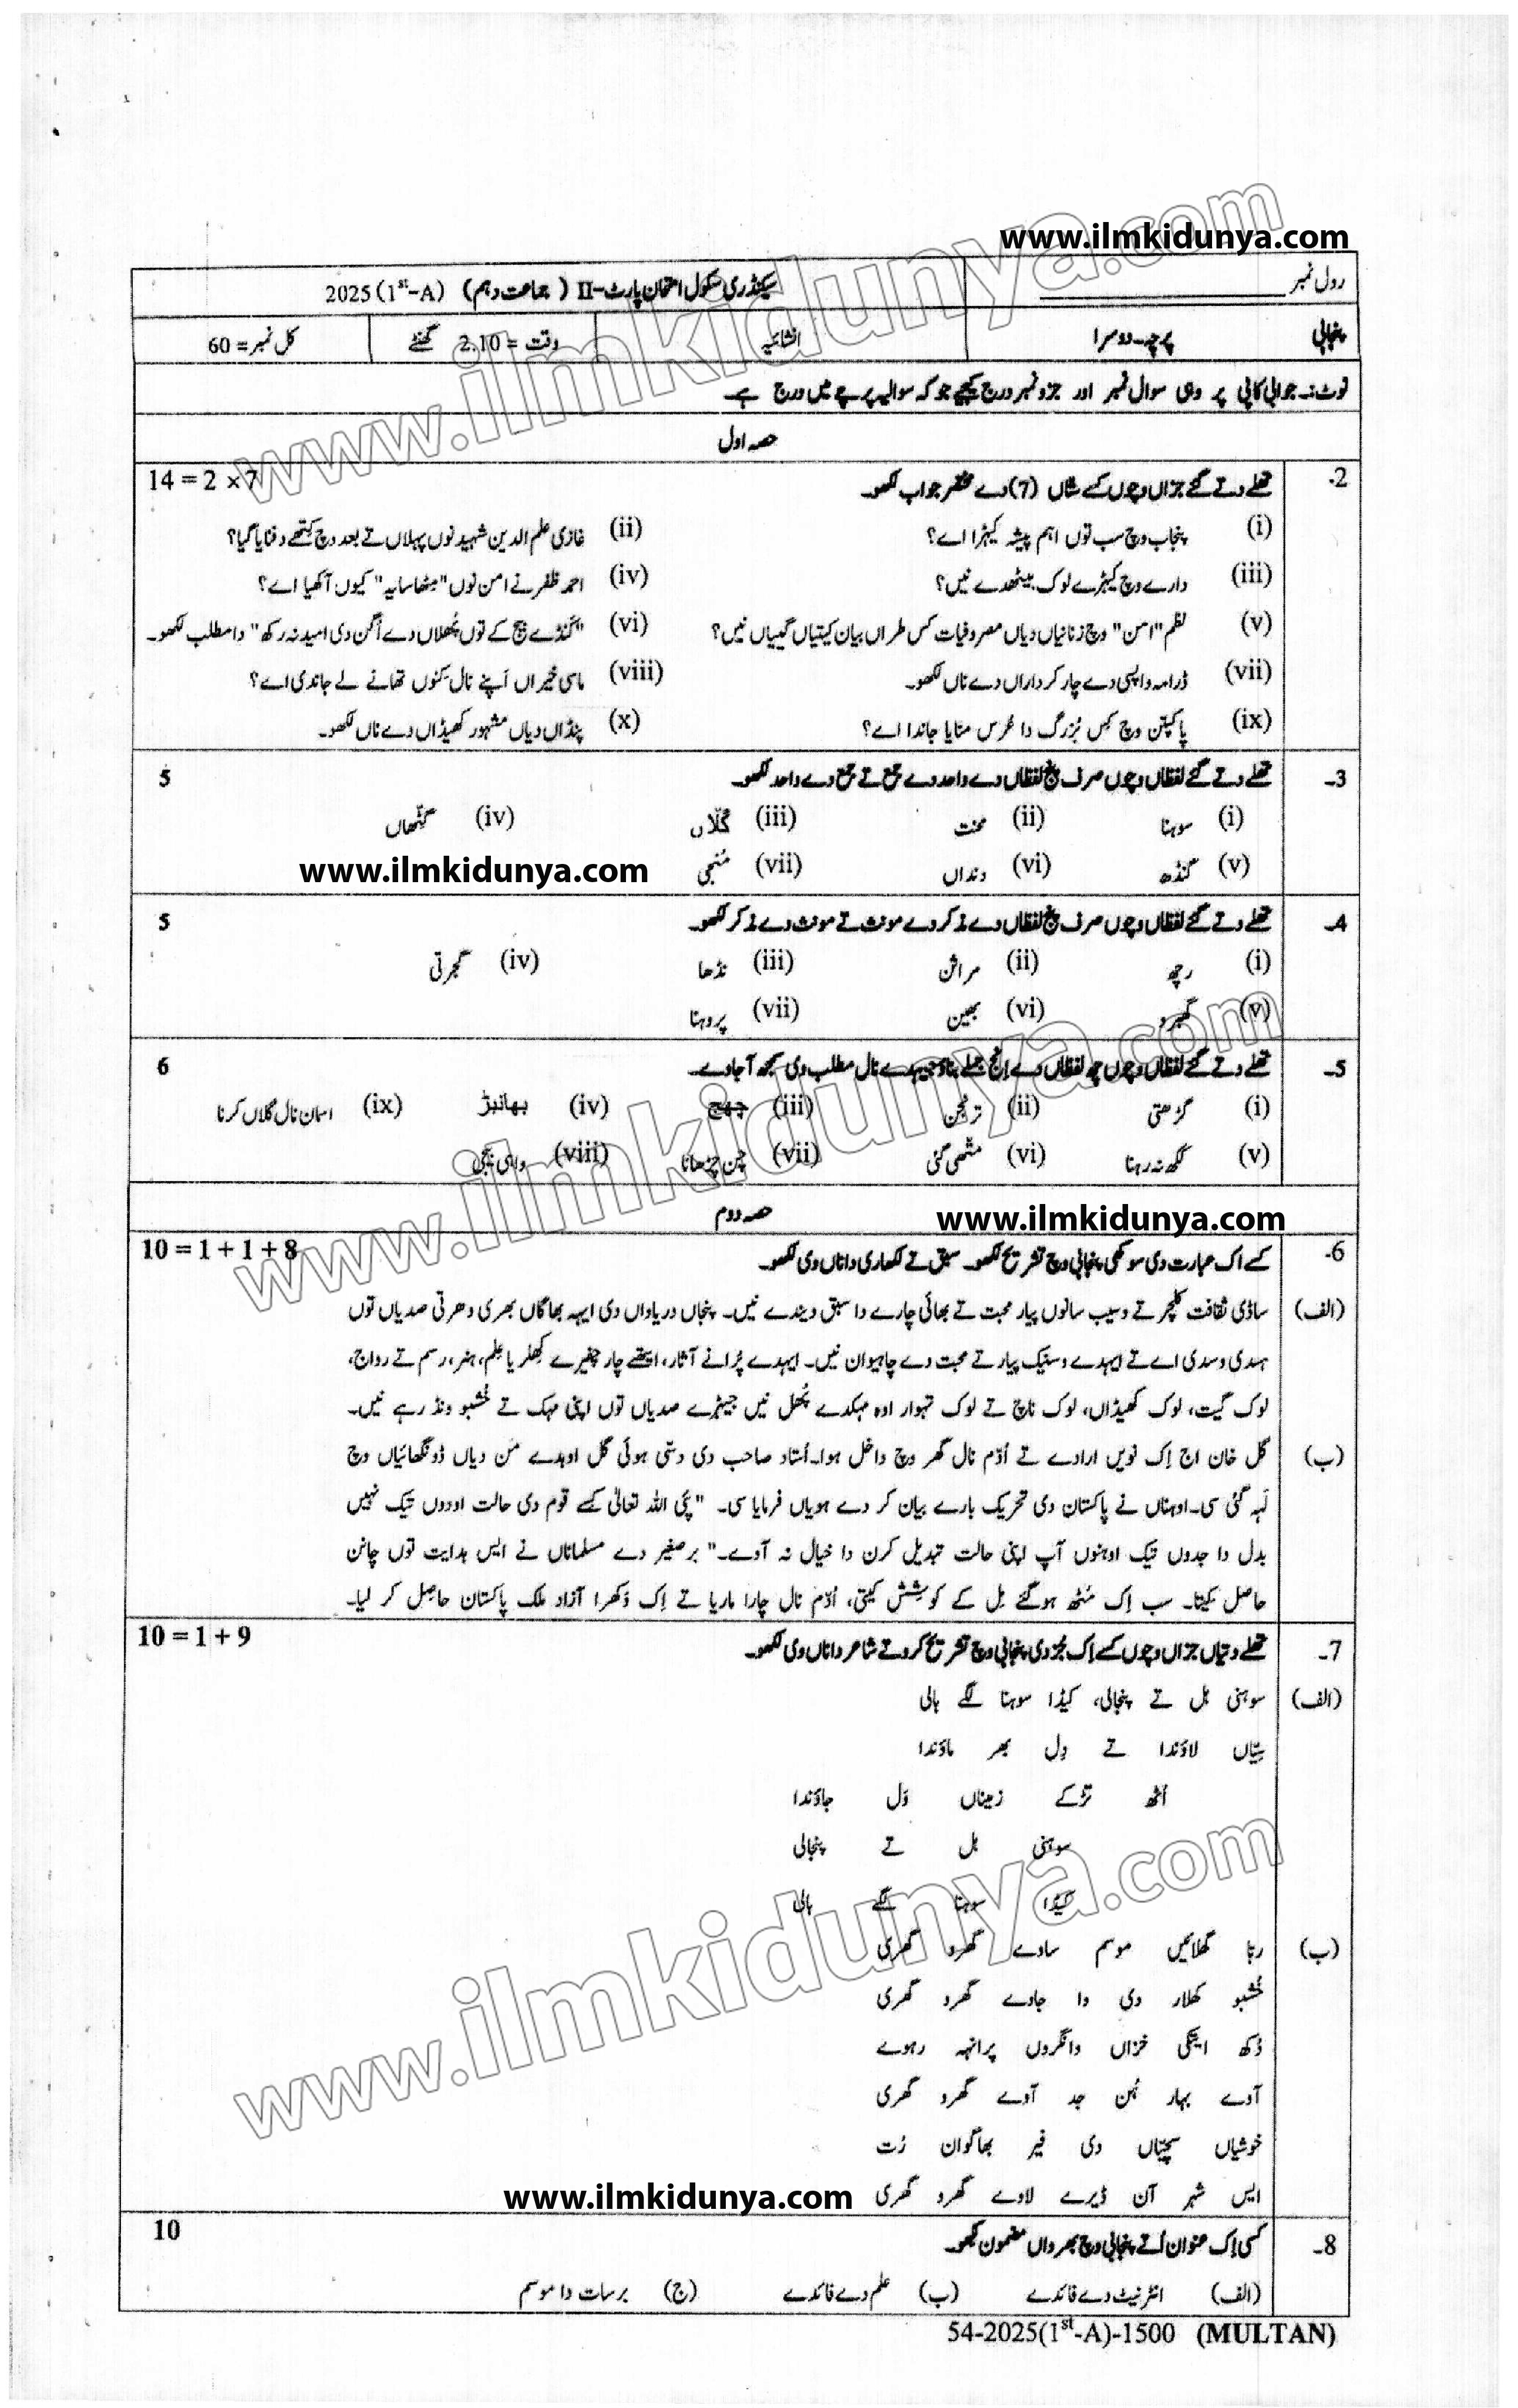 www.ilmkidunya.com
رول نمبر
سیکنڈری سکول امتحان پارٹ-II (جماعت دہم) 2025 (1st-A)
پنجابی پرچہ۔دوسرا انشائیہ وقت = 2.10 گھنٹے کل نمبر = 60
نوٹ:۔ جوابی کاپی پر وہی سوال نمبر اور جزو نمبر درج کیجیے جو کہ سوالیہ پرچے میں درج ہے۔
حصہ اول
2- تھلے دتے گئے جزاں وچوں کسے ستاں (7) دے مختصر جواب لکھو۔ 14 = 2 × 7
(i) پنجاب وچ سب توں اہم پیشہ کیہڑا اے؟ (ii) غازی علم الدین شہید نوں پہلاں تے بعد وچ کتھے دفنایا گیا؟
(iii) دارے وچ کیہڑے لوک بیٹھدے نیں؟ (iv) احمد ظفر نے امن نوں "مٹھا سایہ" کیوں آکھیا اے؟
(v) نظم "امن" وچ زنانیاں دیاں مصروفیات کس طراں بیان کیتیاں گییاں نیں؟ (vi) "کنڈے بیج کے توں پھلاں دے اُگن دی امید نہ رکھ" دا مطلب لکھو۔
(vii) ڈرامہ واپسی دے چار کرداراں دے ناں لکھو۔ (viii) ماسی خیراں اَپنے نال کِنوں تھانے لے جاندی اے؟
(ix) پاکپتن وچ کِس بُزرگ دا عُرس منایا جاندا اے؟ (x) پنڈاں دیاں مشہور کھیڈاں دے ناں لکھو۔
3۔ تھلے دتے گئے لفظاں وچوں صرف پنج لفظاں دے واحد دے جمع تے جمع دے واحد لکھو۔ 5
(i) سوہنا (ii) محنت (iii) گلّاں (iv)
www.ilmkidunya.com
(v) گنڈھ (vi) دنداں (vii) مَنجی
4۔ تھلے دتے گئے لفظاں وچوں صرف پنج لفظاں دے مذکر دے مونث تے مونث دے مذکر لکھو۔ 5
(i) رچھ (ii) مراثن (iii) نڈھا (iv) گجرتی
(v) گبھرو (vi) بھین (vii) پروہنا
5۔ تھلے دتے گئے لفظاں وچوں چھ لفظاں دے اِنج جملے بناؤ جیہدے نال مطلب وی سمجھ آ جاوے۔ 6
(i) گڑھتی (ii) ترنجن (iii) چھج (iv) بھانبڑ (ix) اسمان نال گلاں کرنا
(v) ککھ نہ رہنا (vi) مٹھی گئی (vii) چن چڑھانا (viii) واہی بیجی
حصہ دوم
www.ilmkidunya.com
6- کسے اک عبارت دی سوکھی پنجابی وچ تشریح لکھو۔ سبق تے لکھاری دا ناں وی لکھو۔ 10 = 1 + 1 + 8
(الف) ساڈی ثقافت کلچر تے وسیب سانوں پیار محبت تے بھائی چارے دا سبق دیندے نیں۔ پنجاں دریاواں دی ایہہ بھاگاں بھری دھرتی صدیاں توں
ہسدی وسدی اے تے ایہدے وسنیک پیار تے محبت دے چاہیوان نیں۔ ایہدے پُرانے آثار، ایتھے چار چفیرے کِھلریا عِلم، ہنر، رسم تے رواج،
لوک گیت، لوک کھیڈاں، لوک ناچ تے لوک تہوار اوہ مہکدے پُھل نیں جیہڑے صدیاں توں اپنی مہک تے خُشبو ونڈ رہے نیں۔
(ب) گل خان اج اِک نویں ارادے تے اُدّم نال گھر وچ داخل ہوا۔ اُستاد صاحب دی دسّی ہوئی گل اوہدے مَن دیاں ڈونگھائیاں وچ
لَہہ گئی سی۔ اوہناں نے پاکستان دی تحریک بارے بیان کر دے ہویاں فرمایا سی۔ "پئی اللہ تعالٰی کسے قوم دی حالت اودوں تیک نہیں
بدل دا جدوں تیک اوہنوں آپ اپنی حالت تبدیل کرن دا خیال نہ آوے۔" برصغیر دے مسلماناں نے ایس ہدایت توں چانن
حاصل کیتا۔ سب اِک مُٹھ ہو گئے مِل کے کوشش کیتی، اُدّم نال چارا ماریا تے اِک وَکھرا آزاد ملک پاکستان حاصل کر لیا۔
7۔ تھلے دتیاں جزاں وچوں کسے اِک جُز دی پنجابی وچ تشریح کرو تے شاعر دا ناں وی لکھو۔ 10 = 1 + 9
(الف) سوہنی ہل تے پنجالی، کیڈا سوہنا لگے ہالی
بیّاں لاؤندا تے دِل بھر ماؤندا
اُٹھ تڑکے زمیناں وَل جاؤندا
سوہنی ہل تے پنجالی
کیڈا سوہنا لگے ہالی
(ب) ربّا گھلائیں موسم ساوے گھرو گھری
خُشبو کھلار دی وا جاوے گھرو گھری
دُکھ ایتکی خزاں وانگروں پرانہہ رہوے
آوے بہار ہُن جد آوے گھرو گھری
خوشیاں سچیّاں دی فیر بھاگوان رُت
ایس شہر آن ڈیرے لاوے گھرو گھری
www.ilmkidunya.com
8۔ کسی اِک عنوان اُتے پنجابی وچ بھرواں مضمون لکھو۔ 10
(الف) انٹرنیٹ دے فائدے (ب) علم دے فائدے (ج) برسات دا موسم
54-2025(1st-A)-1500 (MULTAN)